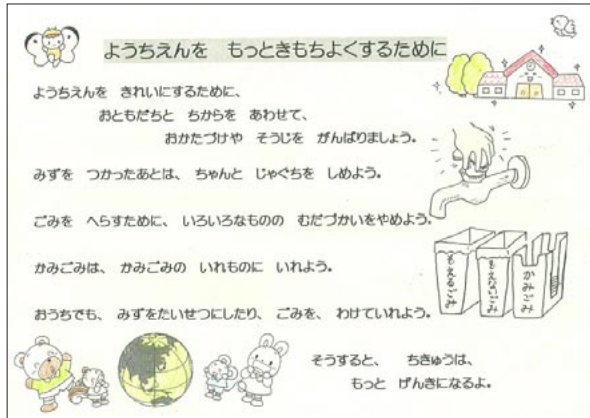 ようちえんを　もっときもちよくするために
ようちえんを　きれいにするために、
おともだちと　ちからを　あわせて、
おかたづけや　そうじを　がんばりましょう。
みずを　つかったあとは、ちゃんと　じゃぐちを　しめよう。
ごみを　へらすために、いろいろなものの　むだづかいをやめよう。
かみごみは、かみごみの　いれものに　いれよう。
もえるごみ
もえないごみ
かみごみ
おうちでも、みずをたいせつにしたり、ごみを、わけていれよう。
そうすると、　ちきゅうは、
もっと　げんきになるよ。